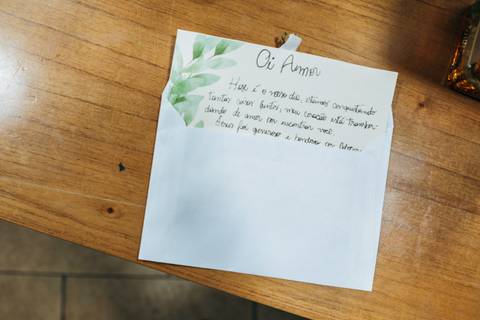 Oi Amor
Hoje é o nosso dia, estamos conquistando
tantas coisas juntos, meu coração está transbor-
dando de amor por encontrar você.
Deus foi generoso e bondoso em